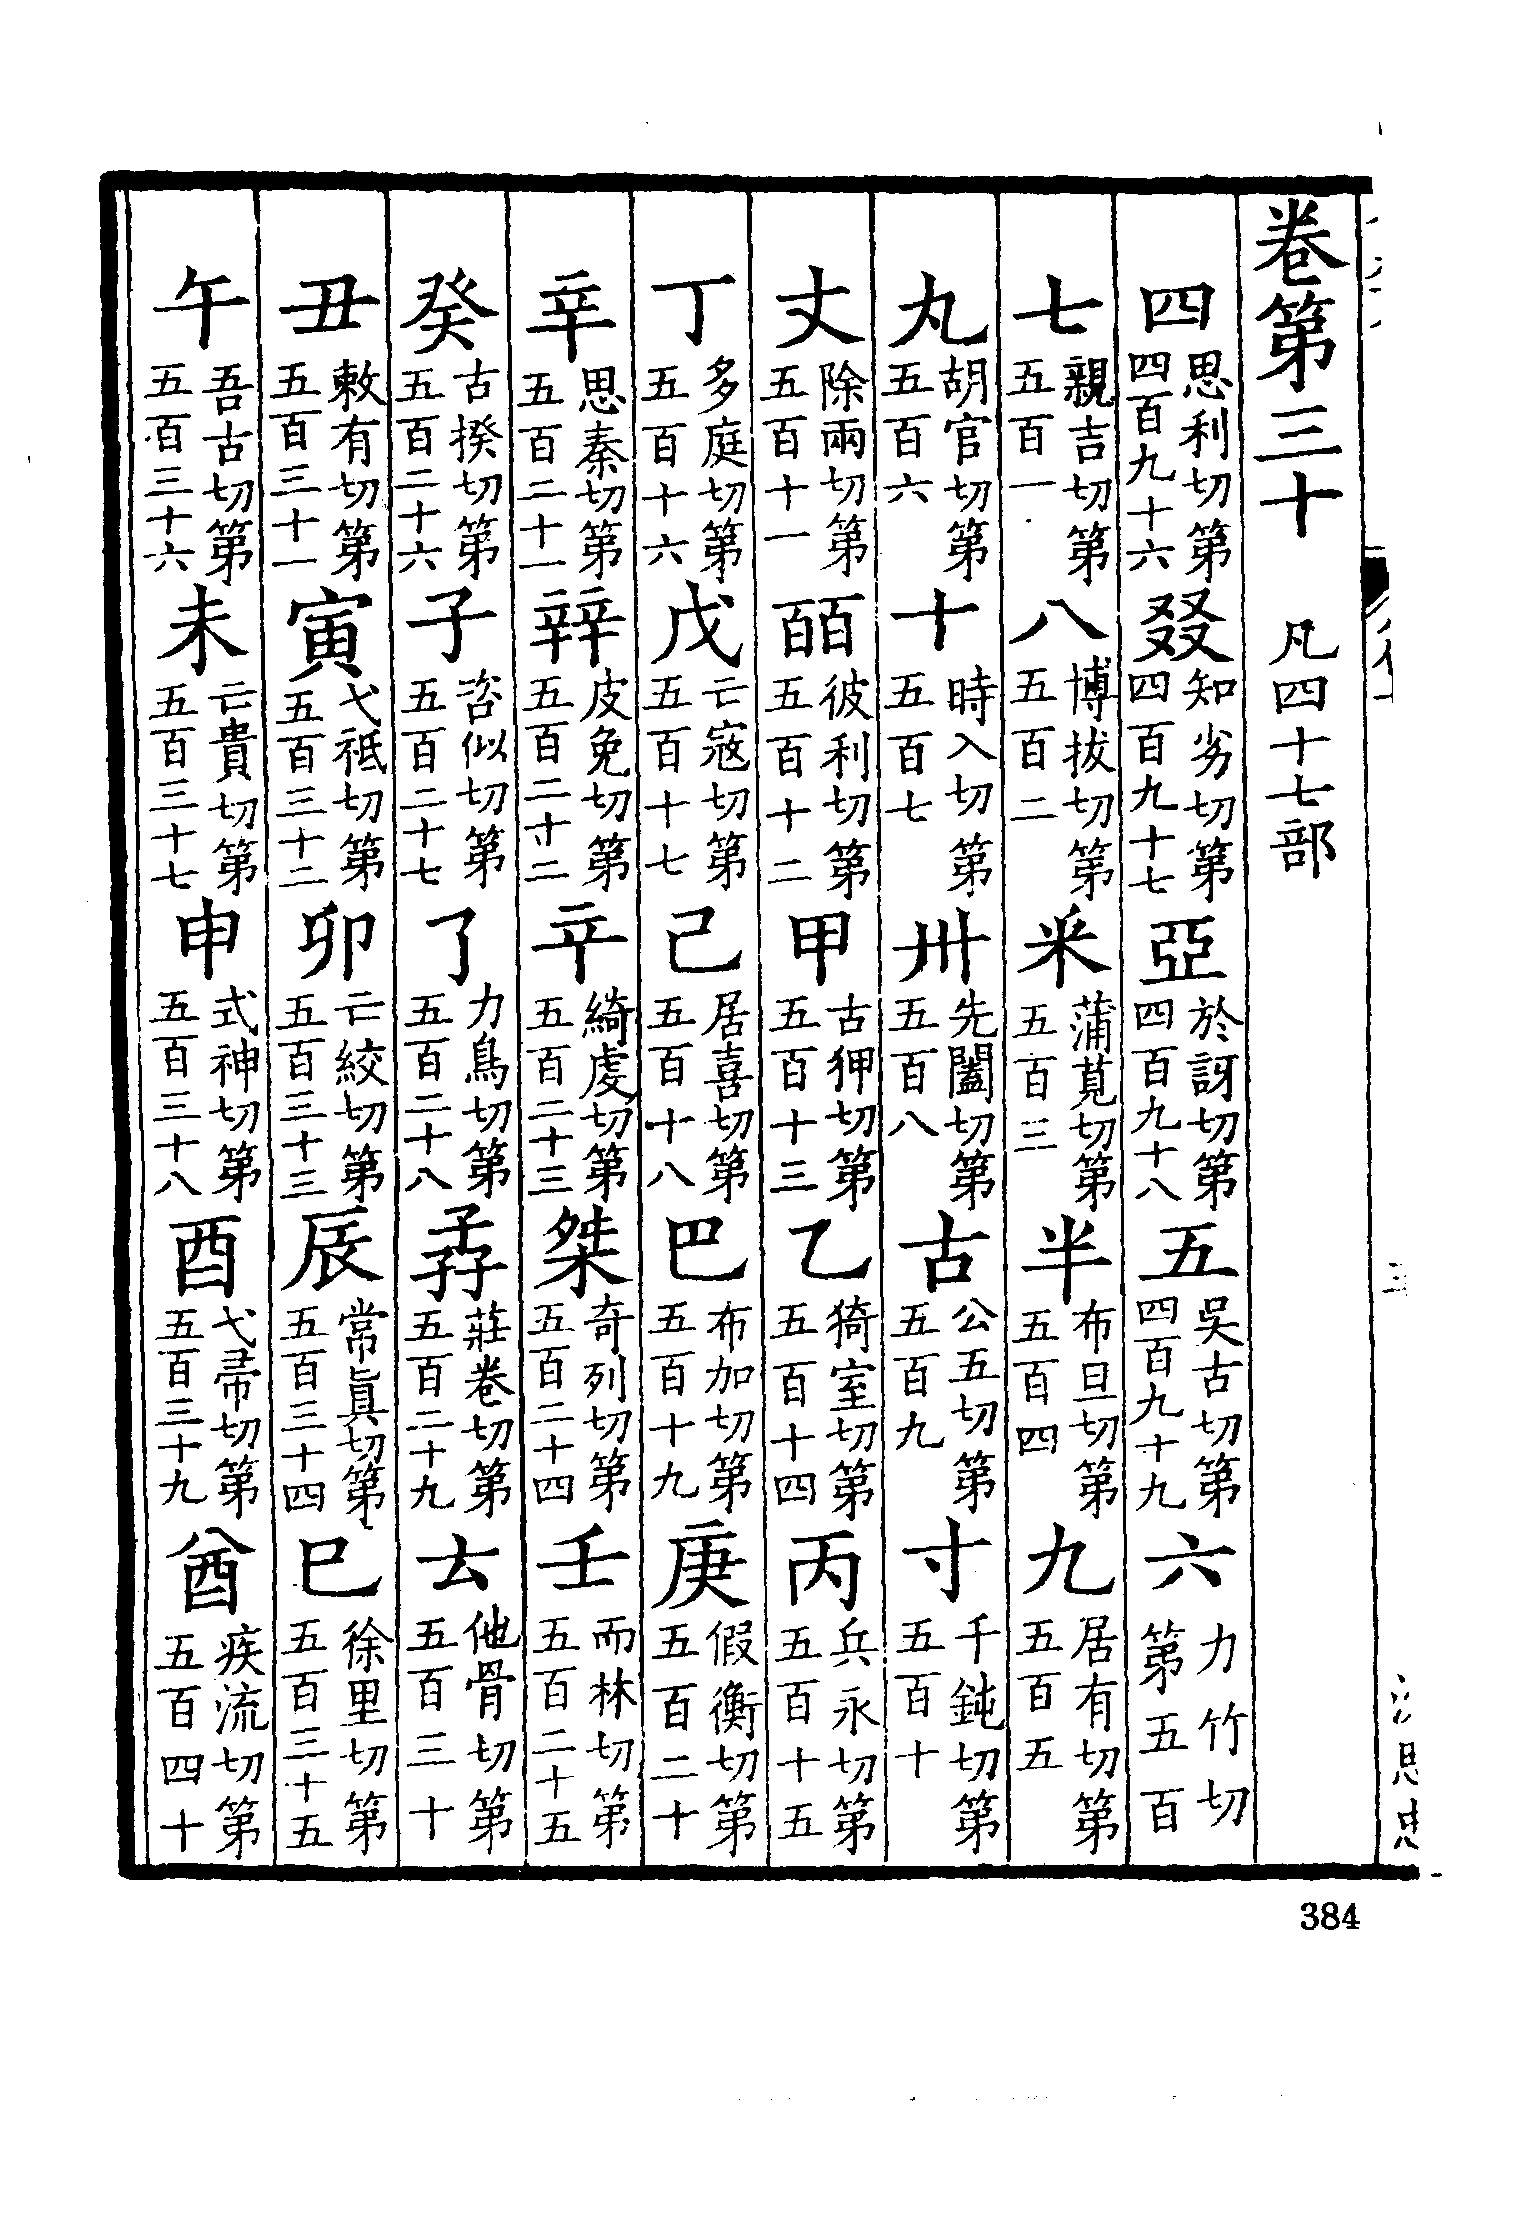 卷第三十　凡四十七部
四思利切第四百九十六叕知劣切第四百九十七亞於訝切第四百九十八五吳古切第四百九十九六力竹切第五百
七親吉切第五百一八博拔切第五百二釆蒲莧切第五百三半布旦切第五百四九居有切第五百五
丸胡官切第五百六十時入切第五百七卅先闔切第五百八古公五切第五百九寸千鈍切第五百十
丈除兩切第五百十一皕彼利切第五百十二甲古狎切第五百十三乙猗室切第五百十四丙兵永切第五百十五
丁多庭切第五百十六戊亡寇切第五百十七己居喜切第五百十八巴布加切第五百十九庚假衡切第五百二十
辛思秦切第五百二十一辡皮免切第五百二十二䇂綺虔切第五百二十三桀奇列切第五百二十四壬而林切第五百二十五
癸古揆切第五百二十六子咨似切第五百二十七了力鳥切第五百二十八孨莊卷切第五百二十九𠫓他骨切第五百三十
丑敕有切第五百三十一寅弋袛切第五百三十二卯亡絞切第五百三十三辰常眞切第五百三十四巳徐里切第五百三十五
午吾古切第五百三十六未亡貴切第五百三十七申式神切第五百三十八酉弋帚切第五百三十九酋疾流切第五百四十
384